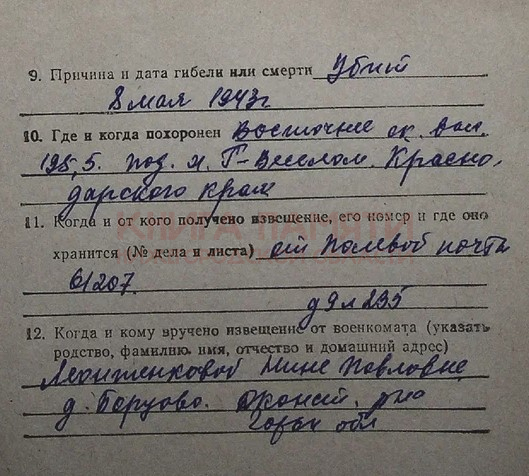 9. Причина и дата гибели или смерти Убит
8 мая 1943г
10. Где и когда похоронен Восточнее ск. выс.
195,5. под. х. Г-Веселом. Красно-
дарского края
КНИГА ПАМЯТИ
11. Когда и от кого получено извещение, его номер и где оно
хранится (№ дела и листа) от Полевой почты
61207.
д 9 л 235
12. Когда и кому вручено извещение от военкомата (указать
родство, фамилию, имя, отчество и домашний адрес)
Нине Павловне
д.
обл